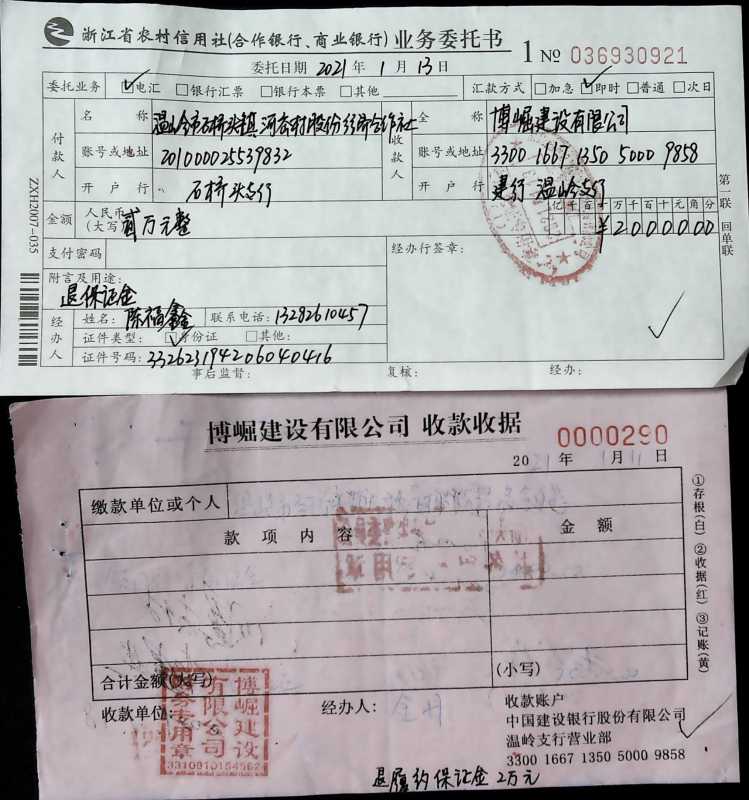 浙江省农村信用社(合作银行、商业银行)业务委托书 1 № 036930921
委托日期 2021年 1月 13日
委托业务 电汇 银行汇票 银行本票 其他 汇款方式 加急 即时 普通 次日
付款人 名称 温岭市石桥头镇 股份经济合作社
账号或地址 201000025539832
开户行 石桥头支行
收款人 全称 博崛建设有限公司
账号或地址 3300 1667 1350 5000 9858
开户行 建行温岭支行
金额 人民币(大写) 贰万元整
亿千百十万千百十元角分
¥2000000
支付密码
经办行签章:
附言及用途:
退保证金
经办人 姓名: 陈福鑫 联系电话: 13282610457
证件类型: 身份证 其他:
证件号码: 332623194206040416
事后监督: 复核: 经办:
第一联 回单联
ZXH2007-035
博崛建设有限公司 收款收据 0000290
2021年 1月11日
缴款单位或个人
款项内容 金额
合计金额(大写) (小写)
收款单位: 经办人:
收款账户
中国建设银行股份有限公司
温岭支行营业部
3300 1667 1350 5000 9858
①存根(白) ②收据(红) ③记账(黄)
博崛建设
有限公司
财务专用章
退履约保证金2万元